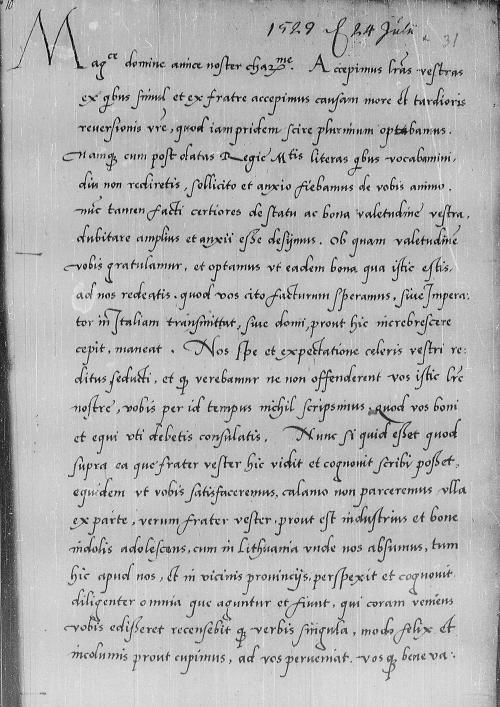 10
1529 24 Julii 31
Magce domine amice noster charme. Accepimus lras vestras
ex qbus simul et ex fratre accepimus causam more et tardioris
reversionis vre, quod iampridem scire plurimum optabamus.
Namq cum post olatas Regie Mtis literas qbus vocabamini,
diu non rediretis, sollicito et anxio fiebamus de vobis animo.
nuc tamen facti certiores de statu ac bona valetudine vestra,
dubitare amplius et anxii esse desijmus. Ob quam valetudine
vobis gratulamur, et optamus vt eadem bona qua istic estis,
ad nos redeatis. quod vos cito facturum speramus, sive Impera:
tor in Italiam transmittat, sive domi, prout hic increbrescere
cepit, maneat. Nos spe et expectatione celeris vestri re:
ditus seducti, et q verebamur ne non offenderent vos istic lre
nostre, vobis per id tempus nichil scripsimus, quod vos boni
et equi vti debetis consulatis. Nunc si quid esset quod
supra ea que frater vester hic vidit et cognouit scribi posset,
equidem vt vobis satisfaceremus, calamo non parceremus vlla
ex parte, verum frater vester, prout est industrius et bone
indolis adolescens, cum in Lithuania vnde nos absumus, tum
hic apud nos, et in vicinis provincijs, perspexit et cognouit
diligenter omnia que aguntur et fiunt, qui coram veniens
vobis edisseret recensebit q verbis singula, modo felix et
incolumis prout cupimus, ad vos perveniat. vos q bene va: